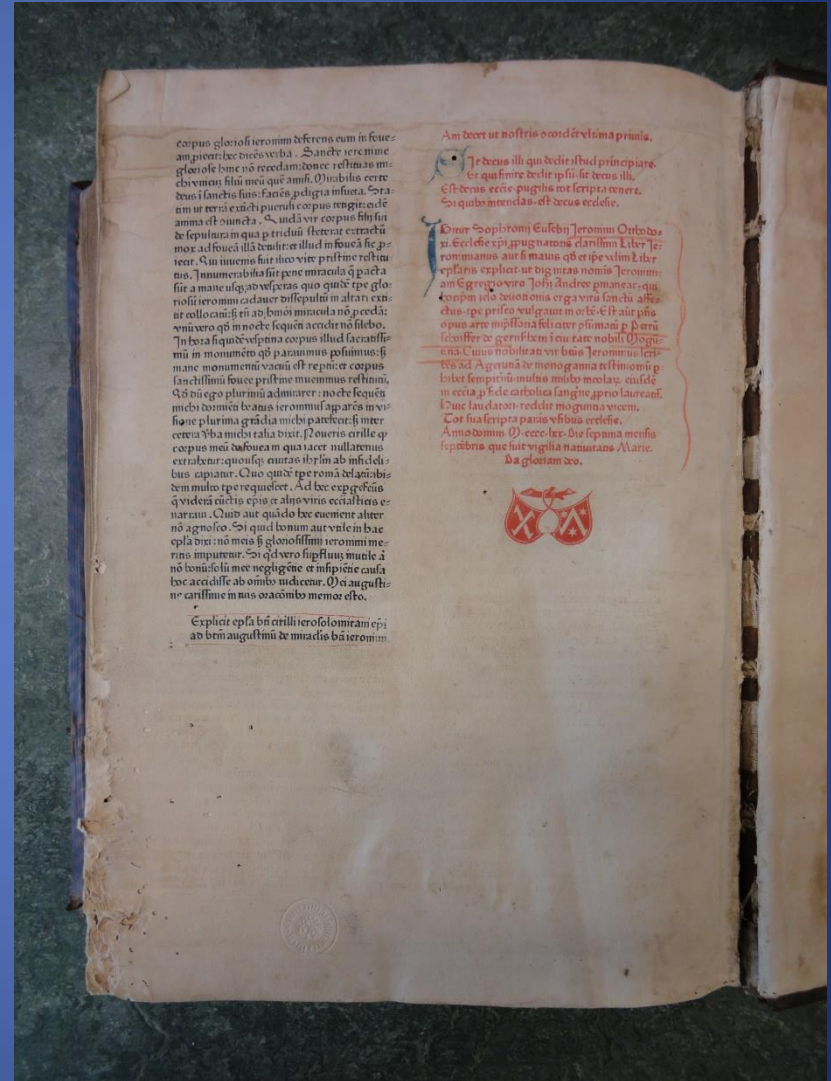 corpus gloriosi ieronimi deferens eum in foue⸗
am ꝓiecit: hec dicēs verba. Sancte ieronime
gloriose hinc nō recedam: donec restituas mi⸗
chi vnicū filiū meū quē amisi. Mirabilis certe
deus ī sanctis suis: faciēs ꝓdigia insueta. Sta⸗
tim ut terrā extīcti pueruli corpus tetigit: eidē
anima est ꝯiuncta. Quidā vir corpus filij sui
de sepultura in qua p triduū steterat extractū
mox ad foueā illā detulit: et illud in foueā sic ꝓ⸗
iecit. Qui iuuenis fuit ilico vite pristine restitu
tus. Innumerabilia sūt pene miracula q̄ pacta
sūt a mane usqꝫ ad vesperas quo quidē tpe glo⸗
riosū ieronimi cadauer dissepultū in altari exti⸗
tit collocatū: sꝫ tn̄ ad hmōi miracula nō ꝓcedā:
vnū vero qd̄ in nocte sequēti accidit nō silebo.
In hora siquidē vesptina corpus illud sacratissi⸗
mū in monumēto qd̄ parauimus posuimus: sꝫ
mane monumentū vacuū est reptū: et corpus
sanctissimū fouee pristine inuenimus restitutū,
Qd̄ dū ego plurimū admirarer: nocte sequēti
michi dormiēti beatus ieronimus apparēs in vi⸗
sione plurima grādia michi patefecit: sꝫ inter
cetera v̄ba michi talia dixit. Noueris cirille ꝙ
corpus meū de fouea in qua iacet nullatenus
extrahetur: quousqꝫ ciuitas ihrlm̄ ab infideli⸗
bus capiatur. Quo quidē tpe romā delatū: ibi⸗
dem multo tpe requiescet. Ad hec expgefctūs
q̄ viderā cūctis epīs et alijs viris ecciasticis e⸗
narraui. Quid aut quādo hec euenient aliter
nō agnosco. Si quid bonum aut vtile in hac
epl̄a dixi: nō meis sꝫ gloriosissimi ieronimi me⸗
ritis imputetur. Si qd̄ vero supfluū inutile ⁊
nō bonū: solū mee negligētie et insipiētie causa
hoc accidisse ab omībꝫ iudicetur. Mei augusti⸗
ne carissime in tuis orac̄onibꝫ memor esto.
Explicit epl̄a bt̄i cirilli ierosolomitani epī
ad btm̄ augustinū de miraclis bt̄i ieronimi
Iam decet ut nostris ꝯcordēt vltima primis.
Sit decus illi qui dedit istud principiare.
Et qui finire dedit ipsū: sit decus illi.
Est decus eccīe: pugilis tot scripta tenere.
Si quibꝫ intendas: est decus ecclesie.
Igitur Sophronij Eusebij Ieronimi Orthodo⸗
xi. Ecclesie xp̄i ꝓpugnatoris clarissimi Liber Ie⸗
ronimianus aut si mauis qd̄ et ipe velim Liber
epl̄aris explicit: ut dignitas nomīs Ieronimi⸗
am Egregio viro Iohī Andree pmaneat: qui
hoc ipm̄ zelo deuotionis erga virū sanctū affe⸗
ctus: tpe prisco vulgauit in orbē. Est aūt p̄ns
opus arte imp̄ssoria feliciter ꝯsumatū p Petrū
schoiffer de gernsshem ī ciuitate nobili Mogū⸗
tina. Cuius nobilitati vir btūs Ieronimus scri⸗
bēs ad Agerutiā de monogamia testimoniū p⸗
hibet sempiternū: multis milibꝫ incolaꝝ eiusdē
in eccīa ꝓ fide catholica sangīne ꝓprio laureatis.
Huic laudatori reddit moguntia vicem.
Tot sua scripta parās vsibus ecclesie.
Anno domini M·cccc·lxx. Die septima mensis
septēbris que fuit vigilia natiuitatis Marie.
Da gloriam deo.